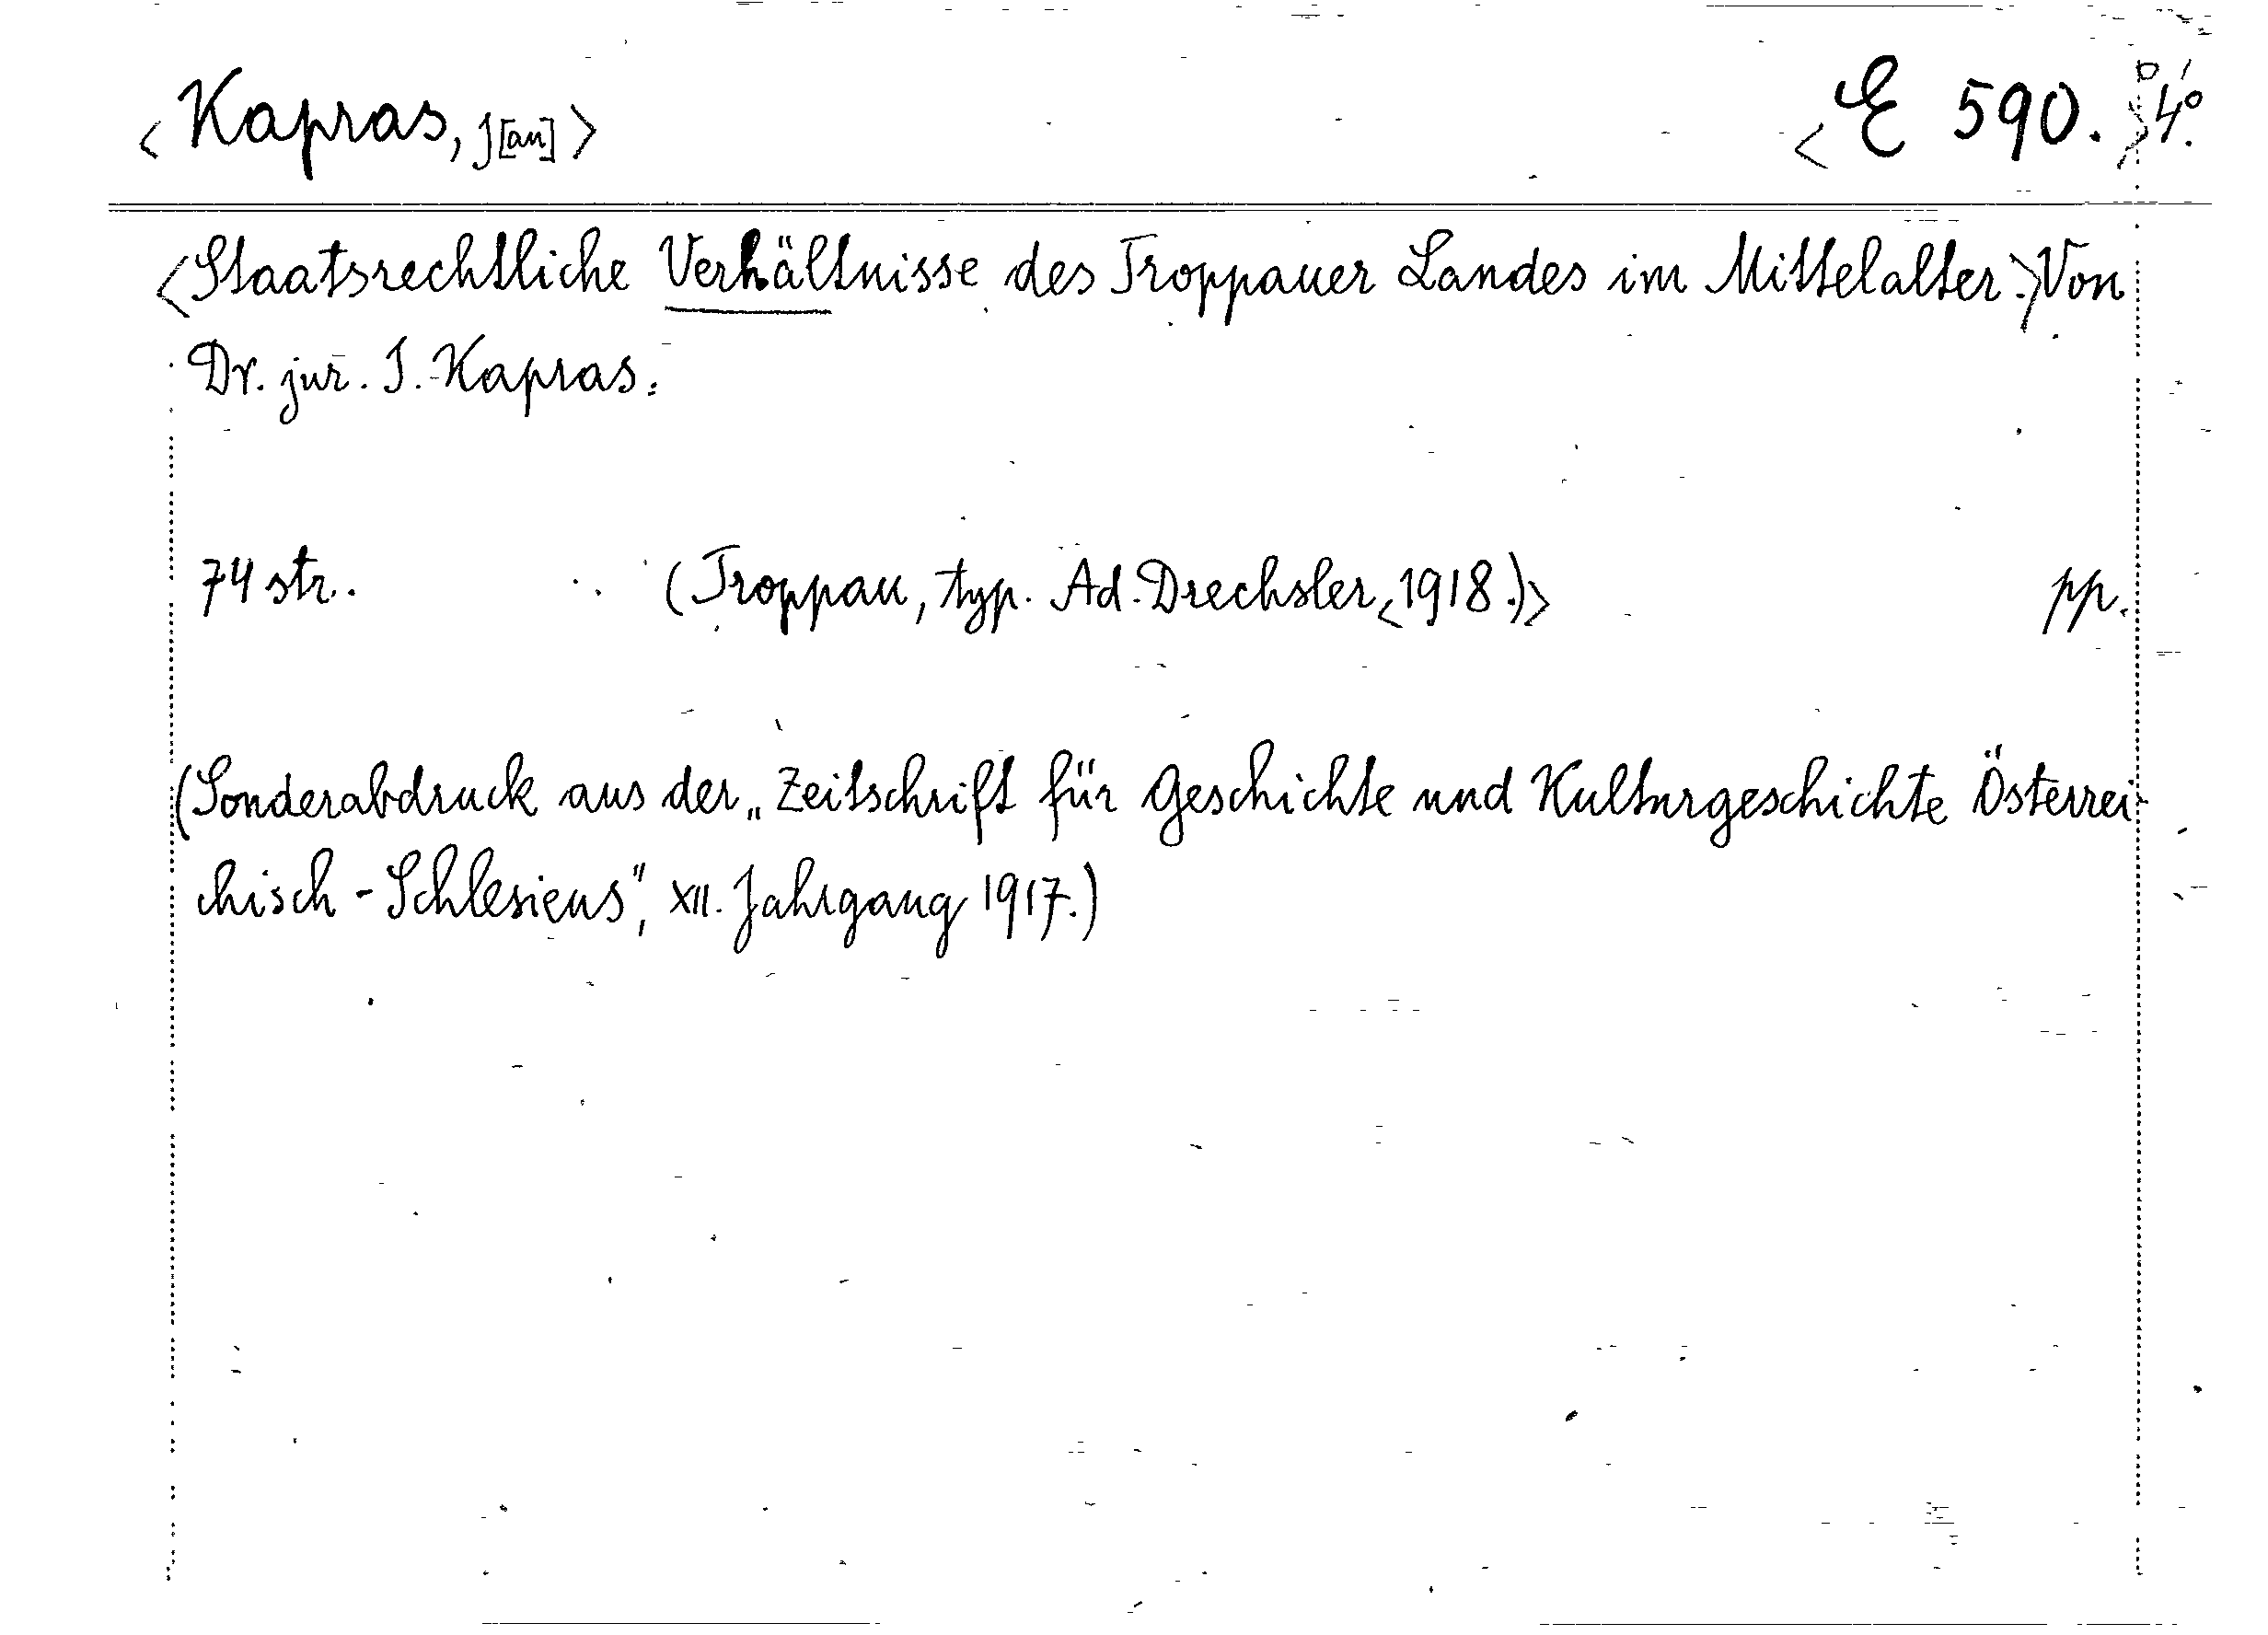 <Kapras, J[an]> <E 590.> 4°.
<Staatsrechtliche Verhältnisse des Troppauer Landes im Mittelalter.> Von
Dr. jur. J. Kapras.
74 str. (Troppau, typ. Ad. Drechsler, <1918.)> pp.
(Sonderabdruck aus der „Zeitschrift für Geschichte und Kulturgeschichte Österrei-
chisch-Schlesiens", XII. Jahrgang 1917.)